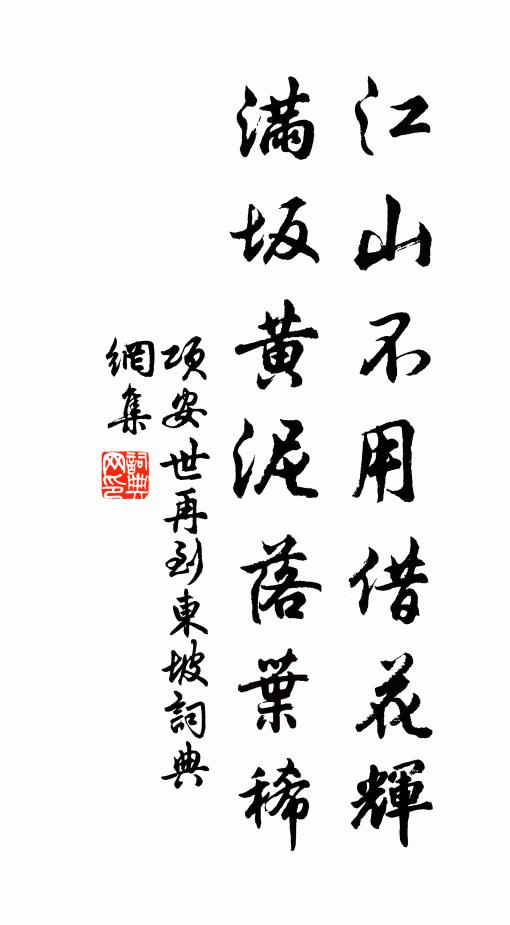 江山不用借花輝
滿坂黃泥落葉稀
項安世再到東坡詞典
網集
詞典
网印